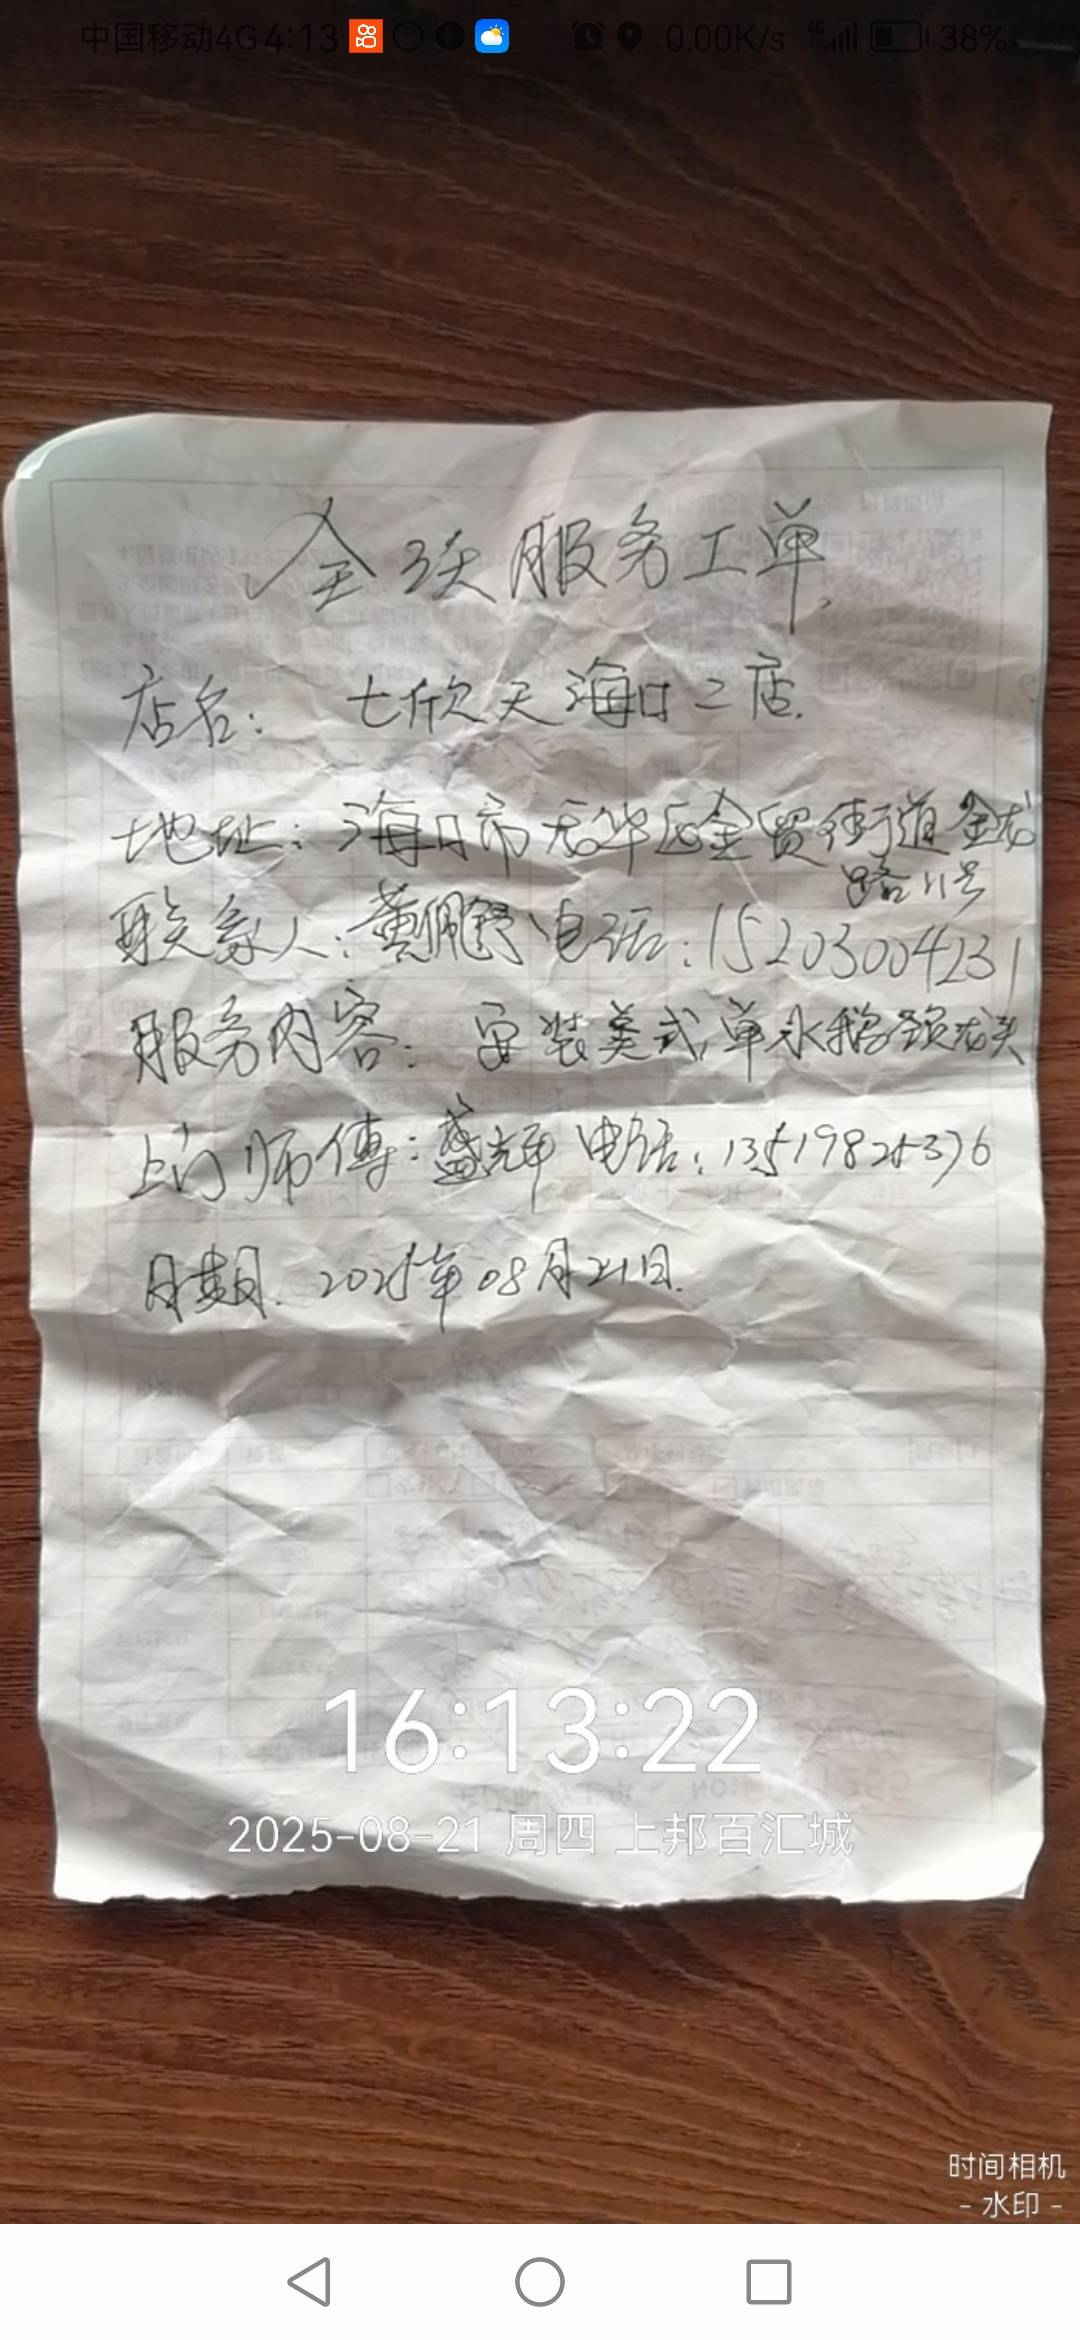 中国移动4G 4:13 0.00K/s 4G 38%
全 服务工单
店名: 七欣天海口二店.
地址: 海口市龙华区金贸街道金龙
路11号
联系人: 黄佩 电话: 15203004231
服务内容: 安装美式单水鹅颈龙头
上门师傅: 盛辉 电话: 13519825376
日期. 2025年08月21日.
16:13:22
2025-08-21 周四 上邦百汇城
时间相机
- 水印 -